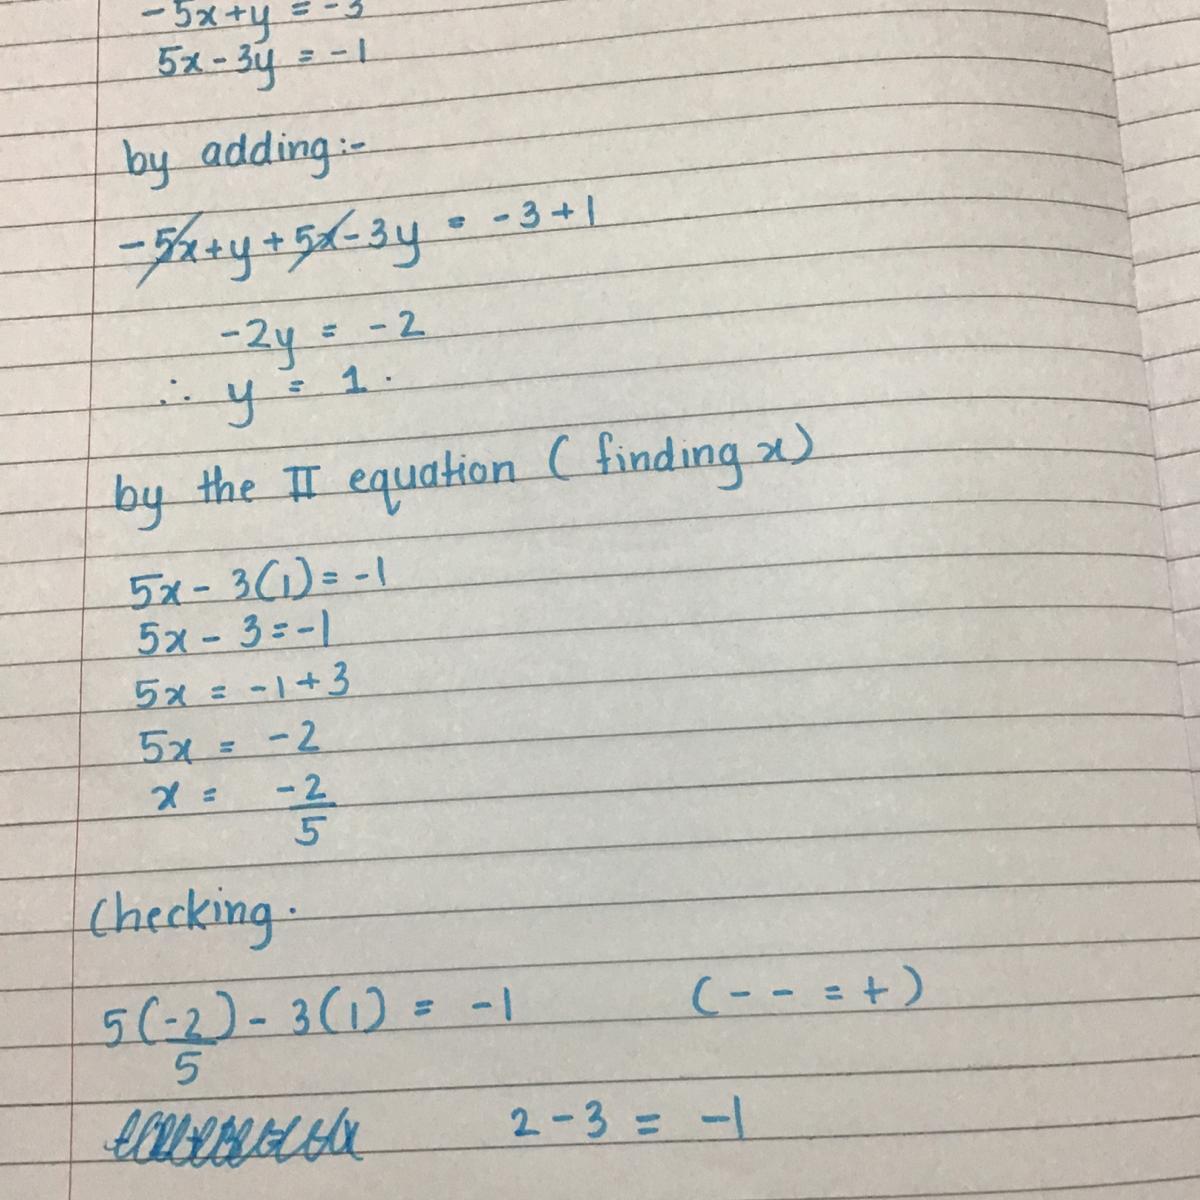 -5x+y = -3
5x - 3y = -1
by adding:-
-5x+y+5x-3y = -3+1
-2y = -2
∴ y = 1.
by the II equation ( finding x)
5x - 3(1) = -1
5x - 3 = -1
5x = -1+3
5x = -2
x = -2/5
Checking.
5(-2/5) - 3(1) = -1 (- - = +)
2 - 3 = -1